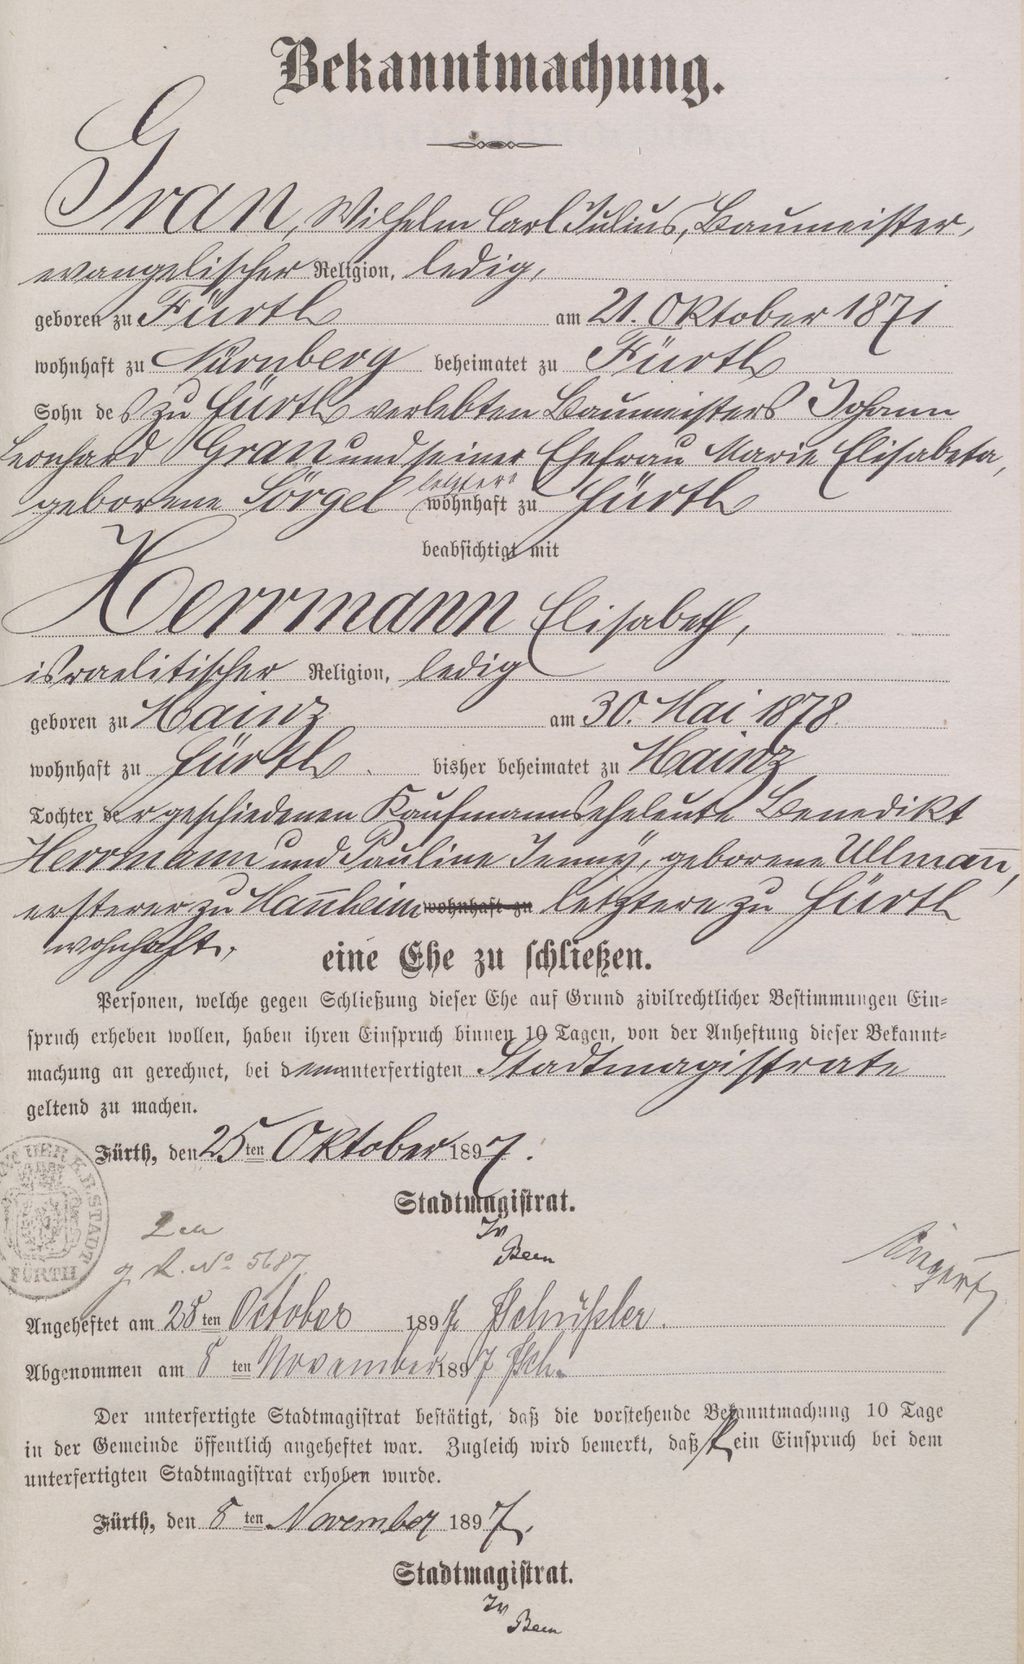 Bekanntmachung.
Gran, Wilhelm Carl Julius, Baumeister,
evangelischer Religion, ledig,
geboren zu Fürth am 21. Oktober 1871
wohnhaft zu Nürnberg beheimatet zu Fürth
Sohn des zu Fürth verlebten Baumeisters Johann
Leonhard Gran und seiner Ehefrau Marie Elisabeta,
geborene Sörgel letztere wohnhaft zu Fürth
beabsichtigt mit
Herrmann Elisabeth,
israelitischer Religion, ledig
geboren zu Mainz am 30. Mai 1878
wohnhaft zu Fürth. bisher beheimatet zu Mainz
Tochter der geschiedenen Kaufmannseheleute Benedikt
Herrmann und Pauline Jenny, geborene Ullmann,
ersterer zu Mannheim wohnhaft zu letztere zu Fürth
wohnhaft,
eine Ehe zu schließen.
Personen, welche gegen Schließung dieser Ehe auf Grund zivilrechtlicher Bestimmungen Ein-
spruch erheben wollen, haben ihren Einspruch binnen 10 Tagen, von der Anheftung dieser Bekannt-
machung an gerechnet, bei dem unterfertigten Stadtmagistrate
geltend zu machen.
Fürth, den 25ten Oktober 1897.
Stadtmagistrat.
DER K.B. STADT
FÜRTH
No 5687
Angeheftet am 28ten October 1897
Abgenommen am 8ten November 1897
Der unterfertigte Stadtmagistrat bestätigt, daß die vorstehende Bekanntmachung 10 Tage
in der Gemeinde öffentlich angeheftet war. Zugleich wird bemerkt, daß kein Einspruch bei dem
unterfertigten Stadtmagistrat erhoben wurde.
Fürth, den 8ten November 1897.
Stadtmagistrat.